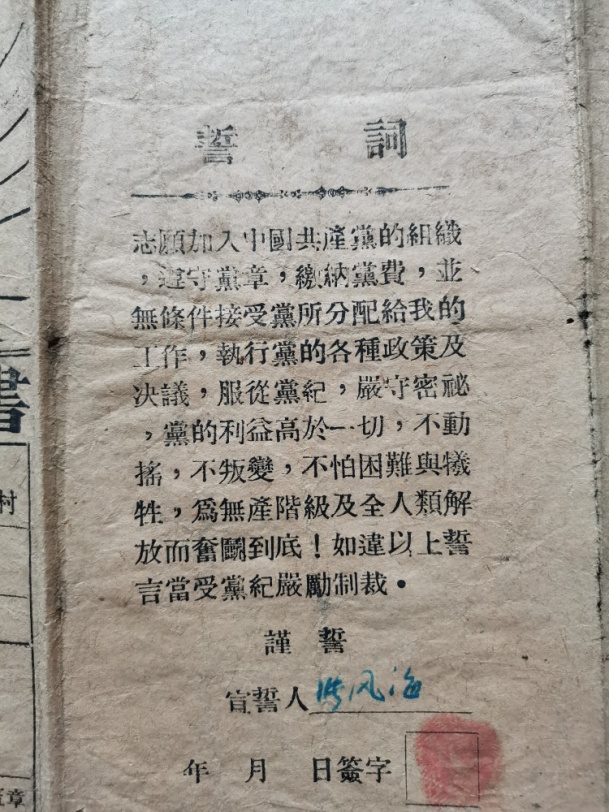 誓 詞
志願加入中國共產黨的組織
，遵守黨章，繳納黨費，並
無條件接受黨所分配給我的
工作，執行黨的各種政策及
決議，服從黨紀，嚴守密祕
，黨的利益高於一切，不動
搖，不叛變，不怕困難與犧
牲，爲無產階級及全人類解
放而奮鬭到底！如違以上誓
言當受黨紀嚴勵制裁。
謹 誓
宣誓人 风海
年 月 日簽字
書
村
章